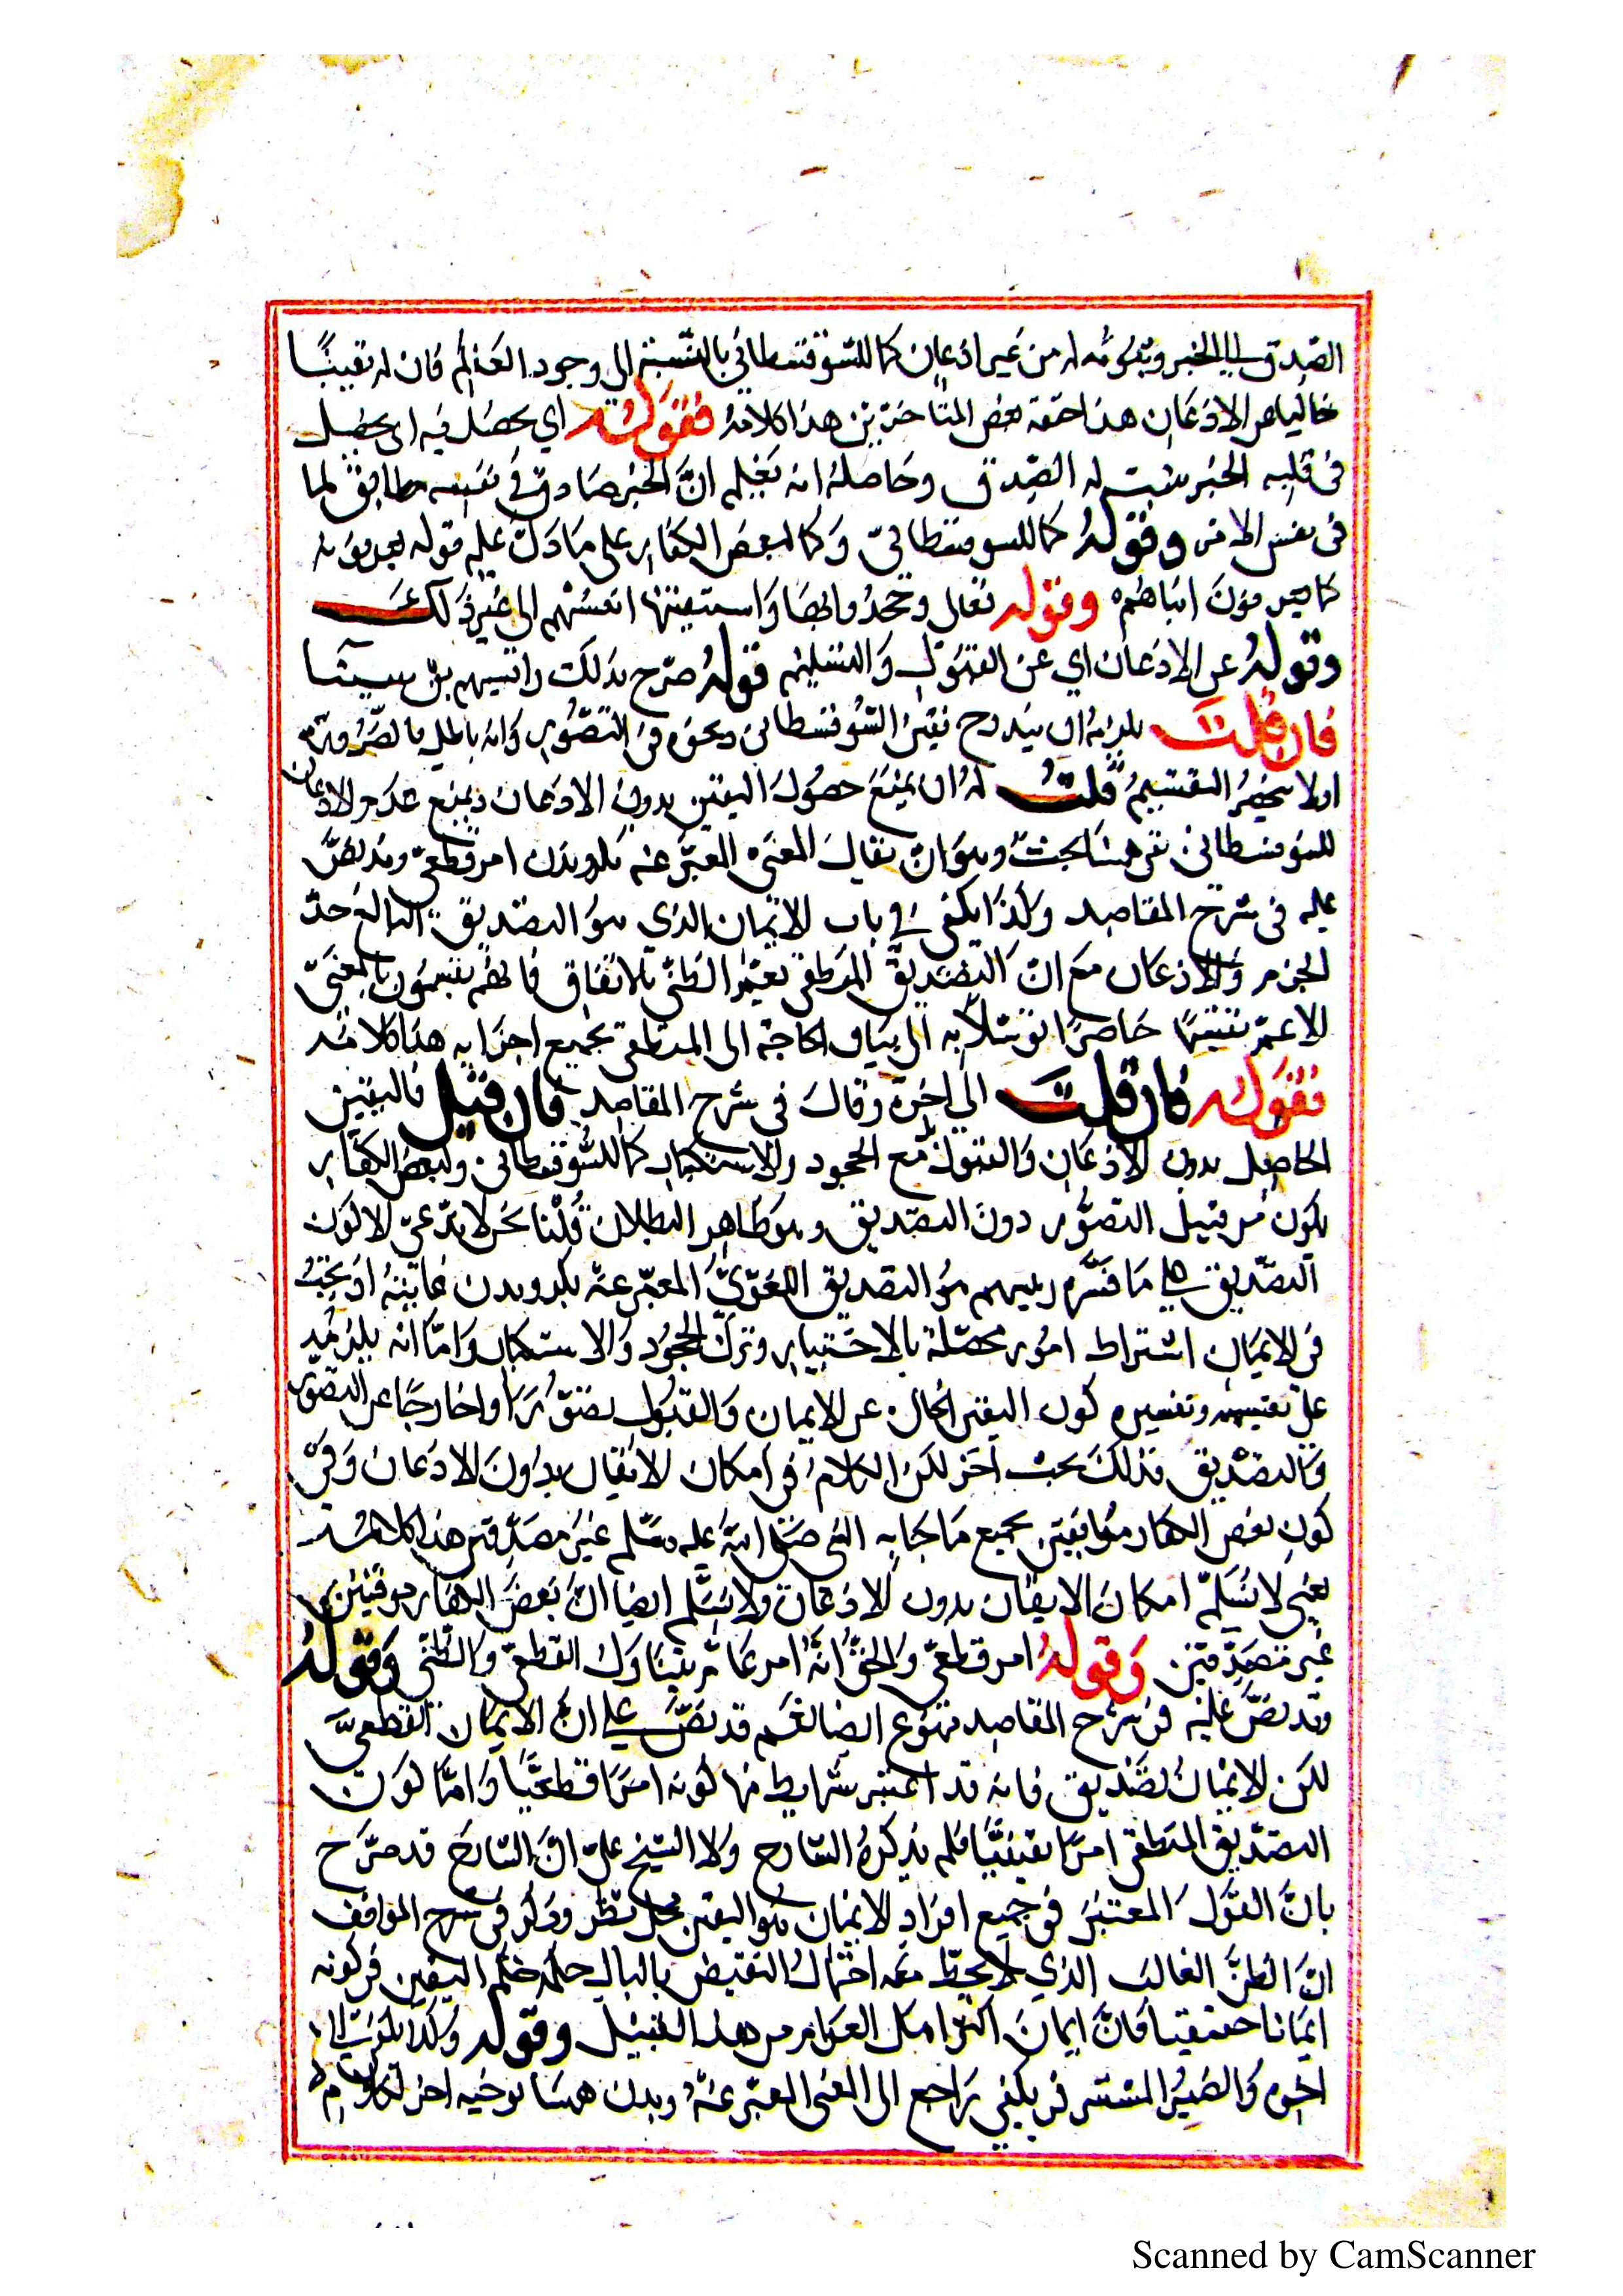 الصدق الى الخبر وثبوته له من غير اذعان كما للسوفسطائي بالنسبة الى وجود العالم فان له يقينًا
خاليا عن الاذعان هذا حققه بعض المتأخرين هذا كلامه فقوله اي يحصل فيه اى يحصل
في قلبه الخبر يثبت له الصدق وحاصله انه يعلم انّ الخبر صادق في نفسه مطابق لما
في نفس الامر وقوله كما للسوفسطائيّ وكما لبعض الكفار على ما دلّ عليه قوله يعرفونه
كما يعرفون ابناهم وقوله تعالى وجحدوا بها واستيقنتها انفسهم الى غير ذلك
وقوله عن الاذعان اي عن القبول والتسليم قوله صرّح بذلك رائيسهم بن سينا
فان قلت يلزمه ان يندرح يقين السوفسطائى ونحوه في التصوّر وانه باطل بالضرورة
اولا ينحصر التقسيم قلت له ان يمنع حصول اليقين بدون الاذعان ويمنع عدم الاذعان
للسوفسطائي بقي هنا بحث وهو انّ يقال المعنى المعبّر عنه بكرويدن امر قطعيّ وقد نصّ
عليه في شرح المقاصد ولذا يكفى في باب الايمان الذي هو التصديق البالغ حدّ
الجزم والاذعان مع انّ التصديق المنطقى يعمّ الظنّى بالاتفاق فانهم يقسمون بالمعنى
الاعمّ تقسيمًا حاصرًا توسّلا به الى بيان الحاجة الى المنطق بجميع اجزايه هذا كلامه
فقوله فان قلت الى اخره وقال في شرح المقاصد فان قيل فاليقين
الحاصل بدون الاذعان والقبول مع الجحود والاستكبار كما للسوفسطائي ولبعض الكفار
يكون من قبيل التصوّر دون التصديق وهو ظاهر البطلان قلنا نحن لا ندّعي الا كون
التصديق على ما فسّره رييسهم هو التصديق اللغويّ المعبّر عنه بكرويدن غايته اذ يجب
في الايمان اشتراط امور محصّلة بالاختيار وترك الجحود والاستكبار وامّا انه يلزمه
على تقسيمه وتفسيره كون اليقين الخال عن الايمان والقبول تصوّرا او خارجًا عن التصوّر
والتصديق فذلك بحث اخر لكن الكلام في امكان الايقان بدون الاذعان وفي
كون بعض الكفار موقنين بجميع ما جا به النبى صلى الله عليه وسلم غير مصدّقين هذا كلامه
يعني لا نسلّم امكان الايقان بدون الاذعان ولا نسلّم ايضا انّ بعض الكفار موقنين
غير مصدّقين وقوله امر قطعيّ والحقّ انّه امر عامّ يتناول القطعيّ والظنّى وقوله
وقد نصّ عليه في شرح المقاصد ممنوع ايضا لعم قد نصّ على انّ الايمان القطعيّ
لكن الايمان تصديق فانه قد اعتبر شرايط منها كونه امرًا قطعيًّا وامّا كون
التصديق المنطقى امرًا يقينيًّا فلم يذكره الشارح ولا الشيخ على انّ الشارح قد صرّح
بانّ القول المعتبر في جميع افراد الايمان هو اليقين محل نظر وذكر في شرح المواقف
انّ الظنّ الغالب الذي لا يخطر معه احتمال النقيض بالبال حكمه حكم اليقين في كونه
ايمانا حقيقيا فانّ ايمان اكثر العوام من هذا القبيل وقوله ولذا يكون الى
اخره والضمير المستتر في يكفي راجع الى المعنى المعبّر عنه وبدن همسا توخيه اخر لكلام